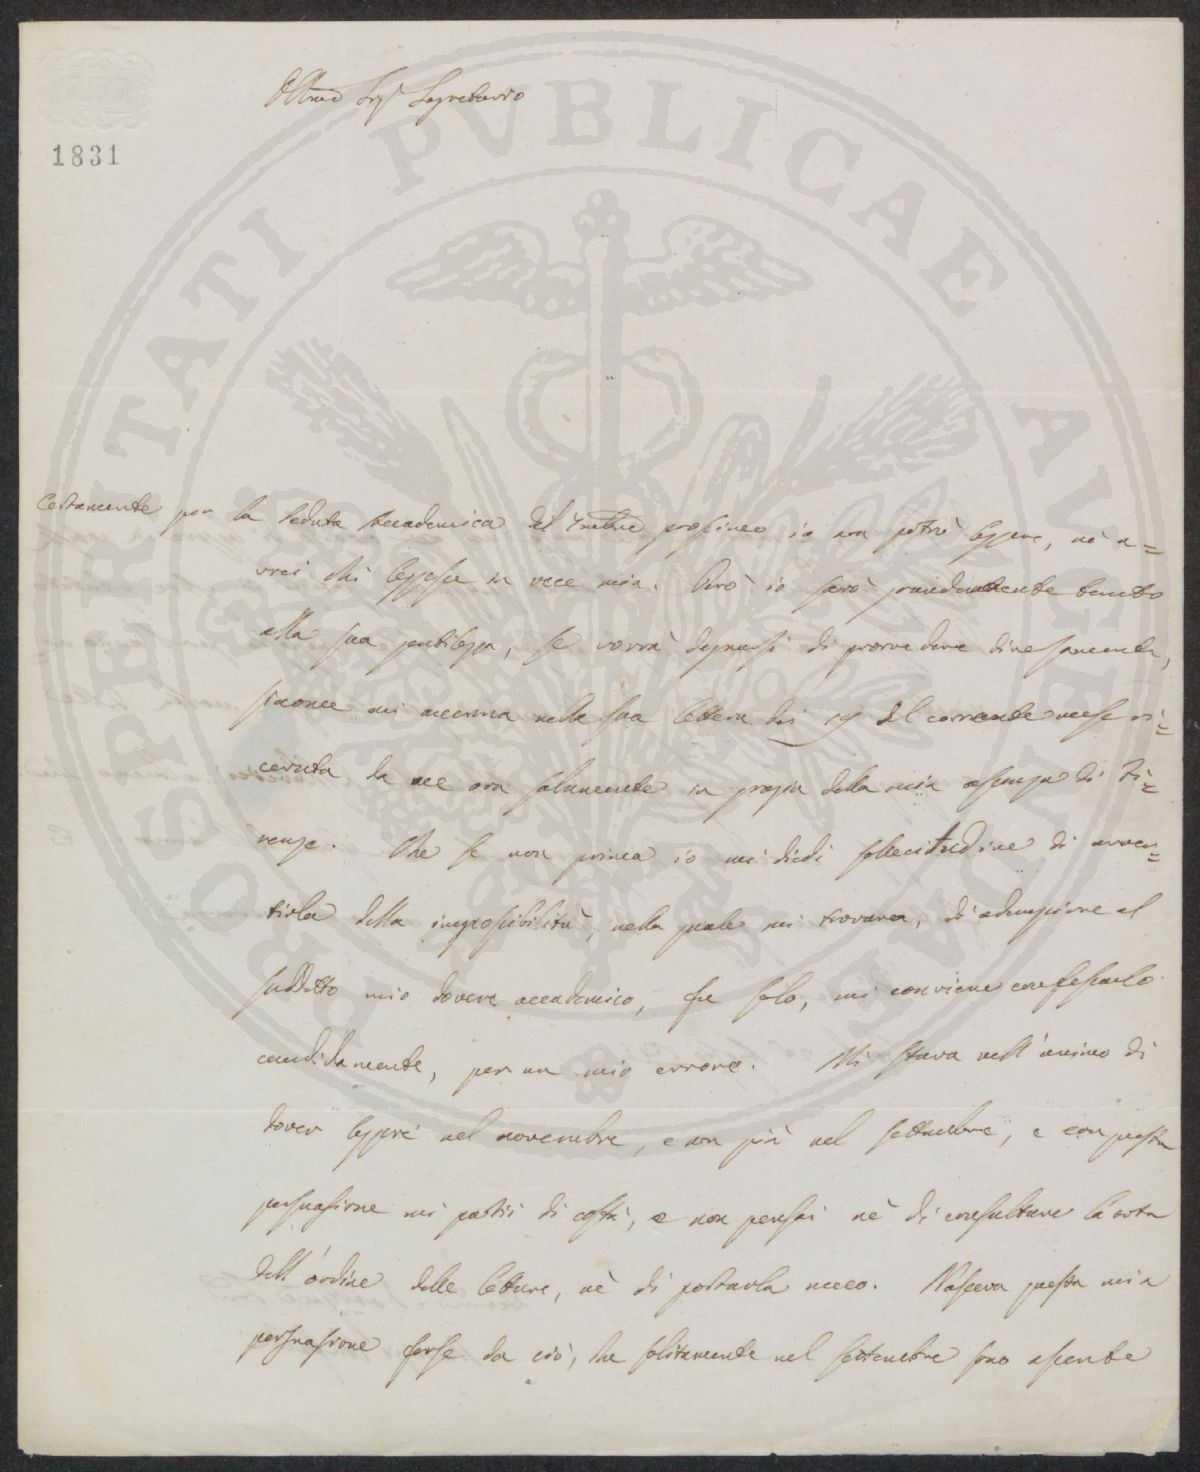 Sig.r Segretario
1831
PROSPERITATI PVBLICAE AVGENDAE
Certamente per la seduta Accademica del 7mbre prossimo io non potrò leggere, nè a=
vrei chi leggesse in vece mia. Però io sarò grandemente tenuto
alla sua gentilezza, se vorrà degnarsi di provvedere diversamente,
siccome mi accenna nella sua lettera dei 19 del corrente mese ri=
cevuta da me ora solamente in grazia della mia assenza di Fi=
renze. Che se non prima io mi diedi sollecitudine di avver=
tirla della impossibilità, nella quale mi trovava, di adempiere al
suddetto mio dovere accademico, fu solo, mi conviene confessarlo
candidamente, per un mio errore. Mi stava nell'animo di
dover leggere nel novembre, e non già nel settembre, e con questa
persuasione mi partii di costà, e non pensai nè di consultare la nota
dell'ordine delle letture, nè di portarla meco. Nasceva questa mia
persuasione forse da ciò, che solitamente nel settembre sono assente